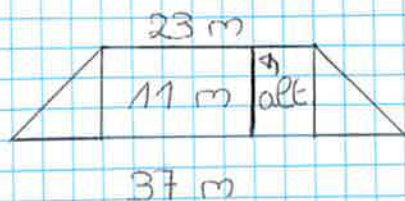 23 m
11 m alt
37 m